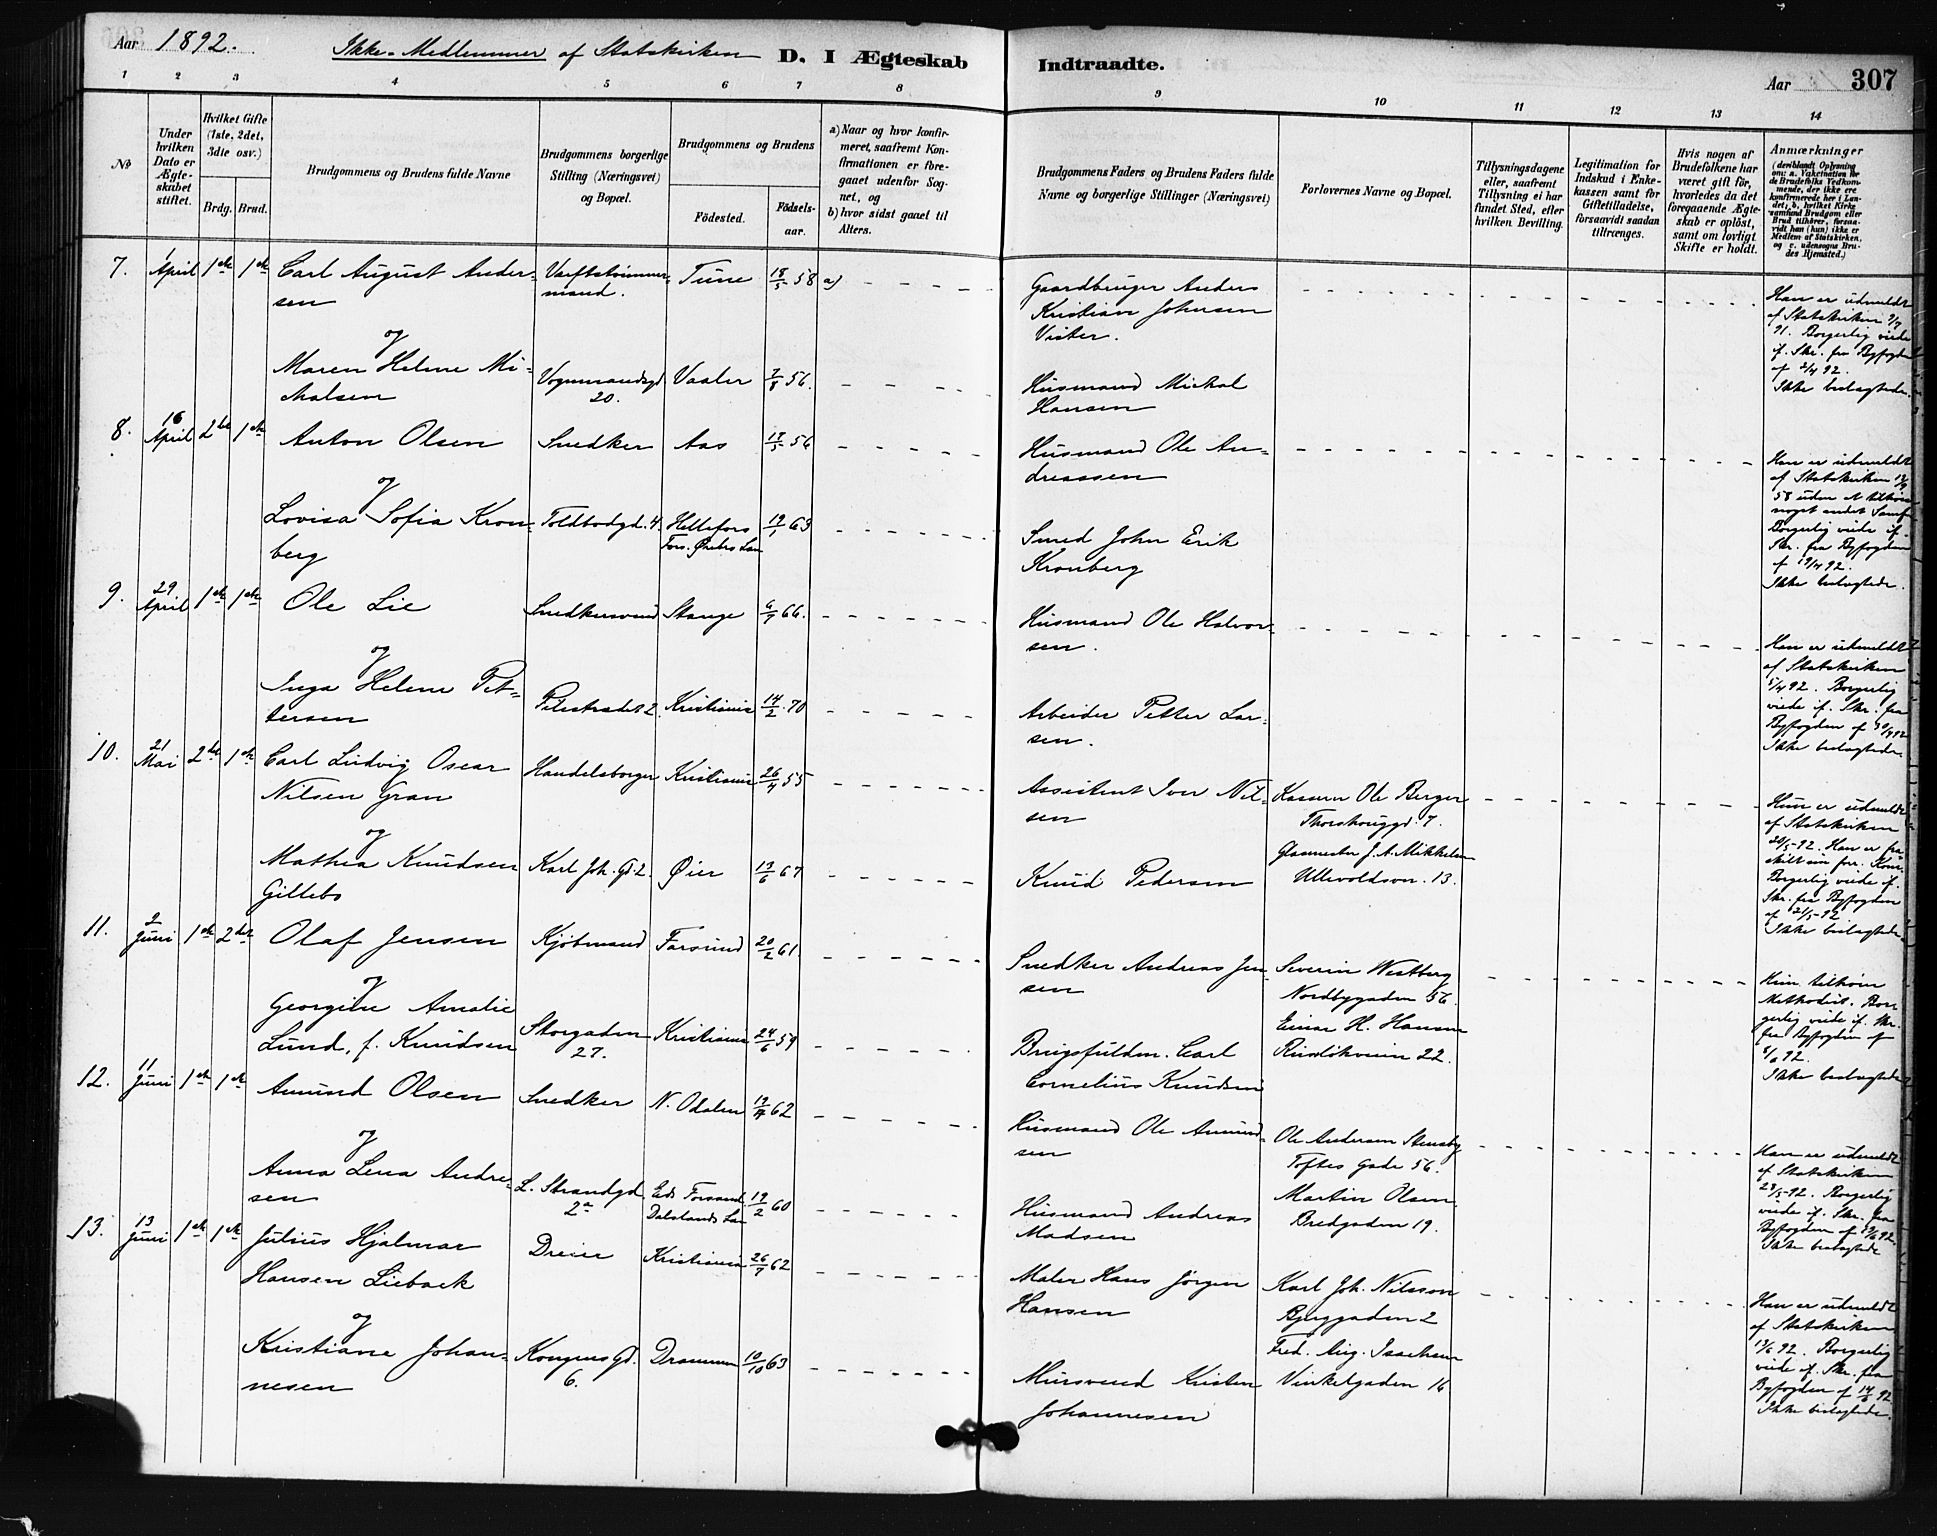 Aar 1892. Ikke-Medlemmer af Statskirken D. I Ægteskab Indtraadte. Aar 307
1 2 3 4 5 6 7 8 9 10 11 12 13 14
No
Under hvilken Dato er Ægteskabet stiftet.
Hvilket Gifte (1ste, 2det, 3die osv.)
Brdg. Brud.
Brudgommens og Brudens fulde Navne
Brudgommens borgerlige Stilling (Næringsvei) og Bopæl.
Brudgommens og Brudens
Födested. Födsels-aar.
a) Naar og hvor konfirmeret, saafremt Konfirmationen er foregaaet udenfor Sognet, og
b) hvor sidst gaaet til Alters.
Brudgommens Faders og Brudens Faders fulde Navne og borgerlige Stillinger (Næringsvei)
Forlovernes Navne og Bopæl.
Tillysningsdagene eller, saafremt Tillysning ei har fundet Sted, efter hvilken Bevilling.
Legitimation for Indskud i Enkekassen samt for Giftetilladelse, forsaavidt saadan tiltrænges.
Hvis nogen af Brudefolkene har været gift för, hvorledes da det foregaaende Ægteskab er oplöst, samt om lovligt Skifte er holdt.
Anmærkninger
(deriblandt Oplysning om: a. Vaccination for de Brudefolks Vedkommende, der ikke ere konfirmerede her i Landet, b. hvilket Kirkesamfund Brudgom eller Brud tilhörer, forsaavidt han (hun) ikke er Medlem af Statskirken, og c. udensogns Brudes Hjemsted.)
7. 1 April 1ste 1ste Carl August Andersen Værftstömmermand. Tune 18/5 58 a)
Gaardbruger Anders Kristian Johnsen Vister.
Han er udmeldt af Statskirken 2/7 91. Borgerlig viede if. Skr. fra Byfogden af 2/4 92. Ikke beslægtede.
og
Maren Helene Michalsen Vognmandsgd 20. Vaaler 7/8 56.
Husmand Michal Hansen
8. 16 April 2det 1ste Anton Olsen Snedker Aas 18/5 56
Husmand Ole Andreassen
Han er udmeldt af Statskirken uden at tilhöre noget andet Samf. Borgerlig viede if. Skr. fra Byfogden af 19/4 92. Ikke beslægtede.
og
Lovisa Sofia Kronberg Toldbodgd. 4. Hellefors Fors. Örebro Län 19/1 63
Smed John Erik Kronberg
9. 29 April 1ste 1ste Ole Lie Snedkersvend Stange 6/7 66.
Husmand Ole Halvorsen.
Han er udmeldt af Statskirken 5/4 92. Borgerlig viede if. Skr. fra Byfogden af 30/4 92 Ikke beslægtede.
og
Inga Helene Pettersen Pilestrædet 2. Kristiania 14/2 70
Arbeider Petter Larsen.
10. 21 Mai 2det 1ste Carl Ludvig Oscar Nilsen Gran Handelsborger Kristiania 26/4 55
Assistent Iver Nilsen
Kasserer Ole Berger Thorshouggd. 7.
Hun er udmeldt af Statskirken 20/5-92. Han er fraskilt sin forr. Kone. Borgerlig viede if. Skr. fra Byfogden af 21/5-92 Ikke beslægtede
og
Mathea Knudsen Gillebo Karl Joh. Gd. 2. Öier 19/6 67
Knud Pedersen
Glasmester J. A. Mikkelsen Ullevoldsvn. 13.
11. 2 Juni 1ste 2det Olaf Jensen Kjöbmand Farsund 20/2 61
Snedker Andreas Jensen
Severin Westberg Nordbygaden 56.
Hun tilhörer Methodist. Borgerlig viede if. Skr. fra Byfogden af 8/6 92. Ikke beslægtede
og
Georgine Amalie Lund, f. Knudsen Storgaden 27. Kristiania 24/6 59
Brugsfuldm. Carl Cornelius Knudsen
Einar H. Hansen Riislökveien 22.
12. 11 Juni 1ste 1ste Amund Olsen Snedker N. Odalen 62
Husmand Ole Amundsen
Ole Andersen Stensby Toftes Gade 56.
Han er udmeldt af Statskirken 28/5-92. Borgerlig viede if. Skr. fra Byfogden af 92. Ikke beslægtede
og
Anna Lena Andresen L. Strandgd 2a Dalslands Län 19/2 60
Husmand Andreas Madsen
Martin Olsen Bredgaden 19.
13. 13 Juni 1ste 1ste Julius Hjalmar Hansen Liebaek Dreier Kristiania 26/7 62
Maler Hans Jörgen Hansen
Karl Joh. Nilsson Bjerggaden 2
Han er udmeldt af Statskirken 13/6 92. Borgerlig viede if. Skr. fra Byfogden af 14/6 92. Ikke beslægtede.
og
Kristiane Johannesen Kongens Gd. 6. Drammen 10/10 63
Mursvend Kristen Johannesen
Fred. Aug. Isachsen Vinkelgaden 16